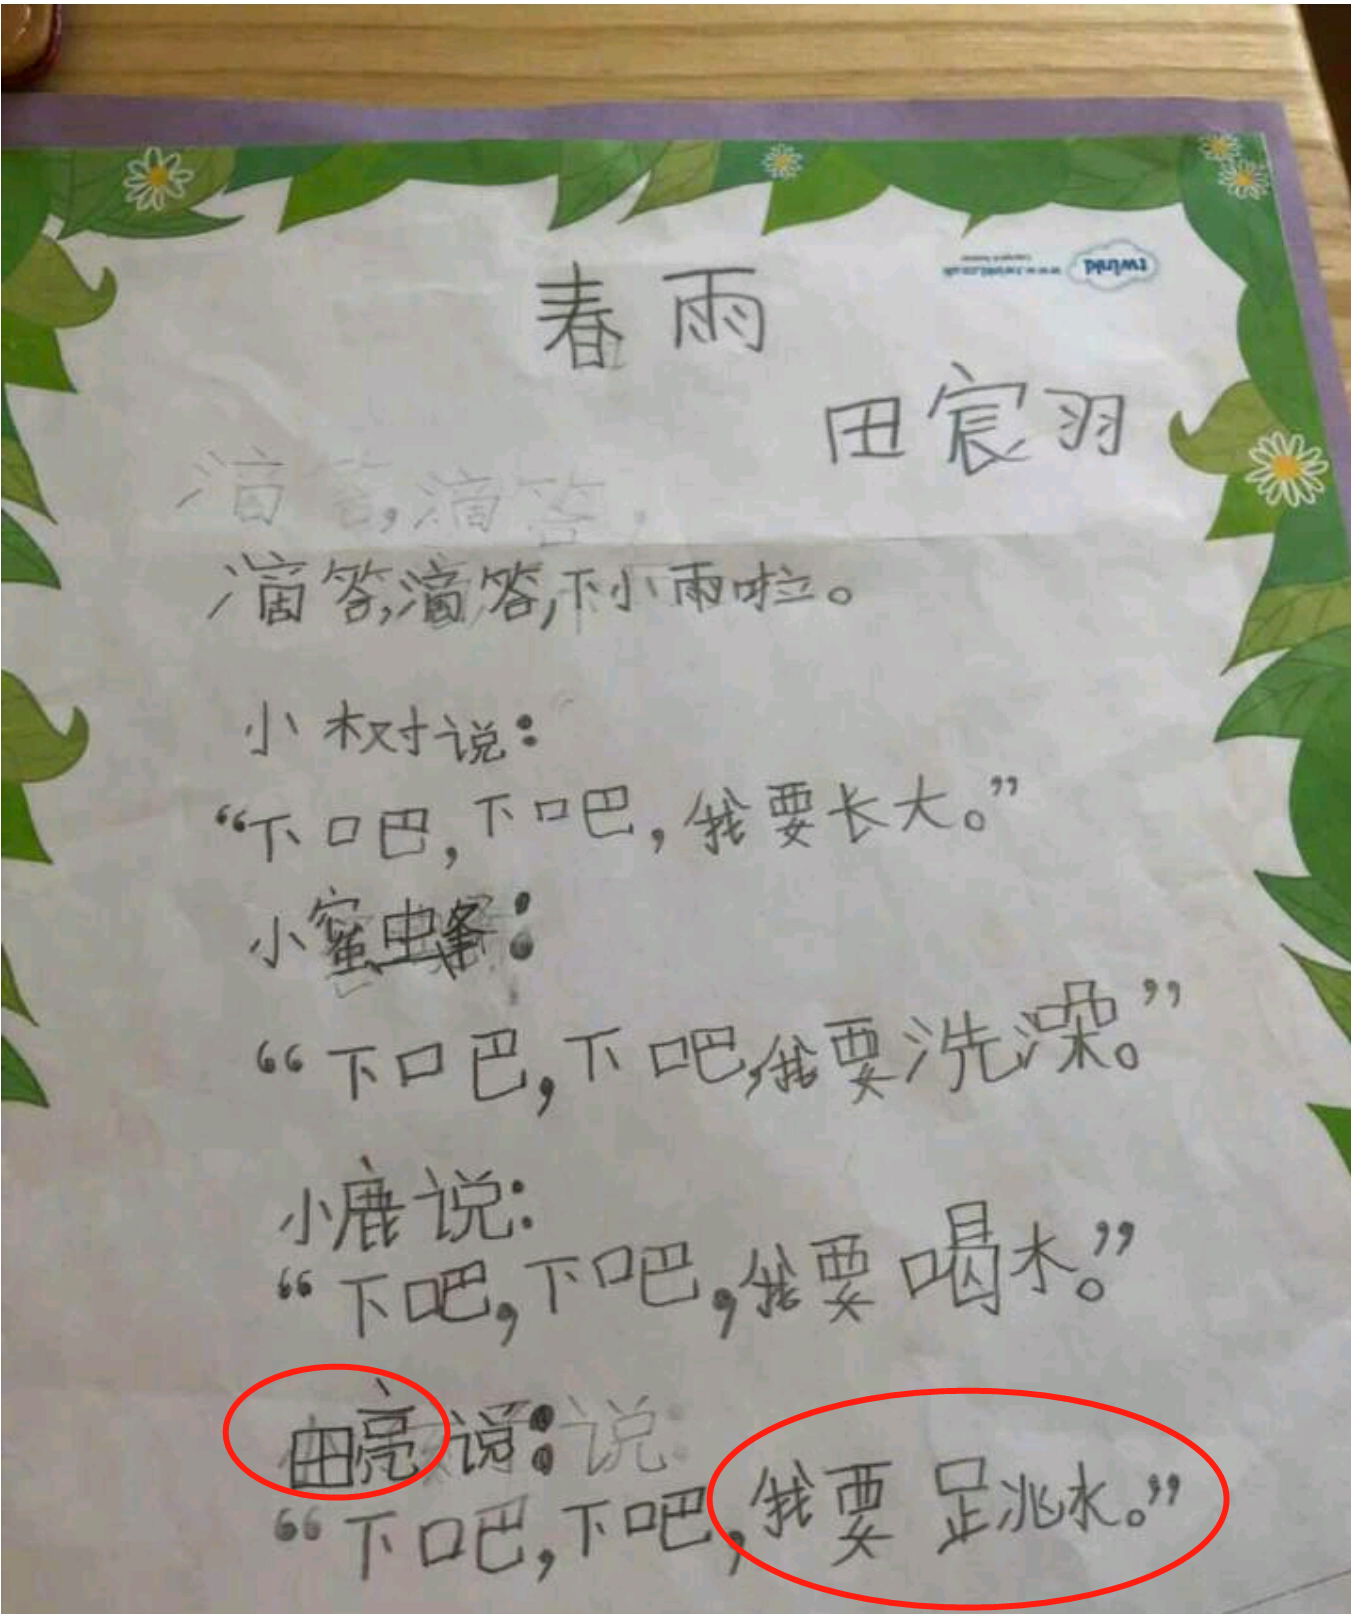 春雨
田宸羽
滴答,滴答,
滴答,滴答,下小雨啦。
小树说:
“下吧,下吧,我要长大。”
小蜜蜂:
“下吧,下吧,我要洗澡。”
小鹿说:
“下吧,下吧,我要喝水。”
田亮说:说:
“下吧,下吧,我要跳水。”
twinkl
www.twinkl.co.uk